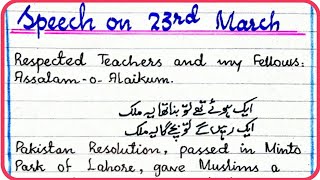 Speech on 23rd March
Respected Teachers and my Fellows:
Assalam-o-Alaikum.
ایک ہوئے تھے تو بنا تھا یہ ملک
ایک رہیں گے تو بچے گا یہ ملک
Pakistan Resolution, passed in Minto
Park of Lahore, gave Muslims a